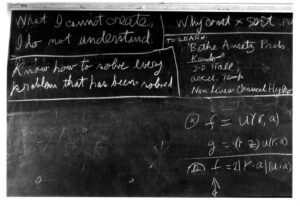 What I cannot create,
I do not understand.
Know how to solve every
problem that has been solved
Why const × sort. PO
TO LEARN:
Bethe Ansatz Probs.
Kondo
2-D Hall
accel. Temp
Non Linear Classical Hydro
f = U(r, a)
g =
f = 2|r·a|